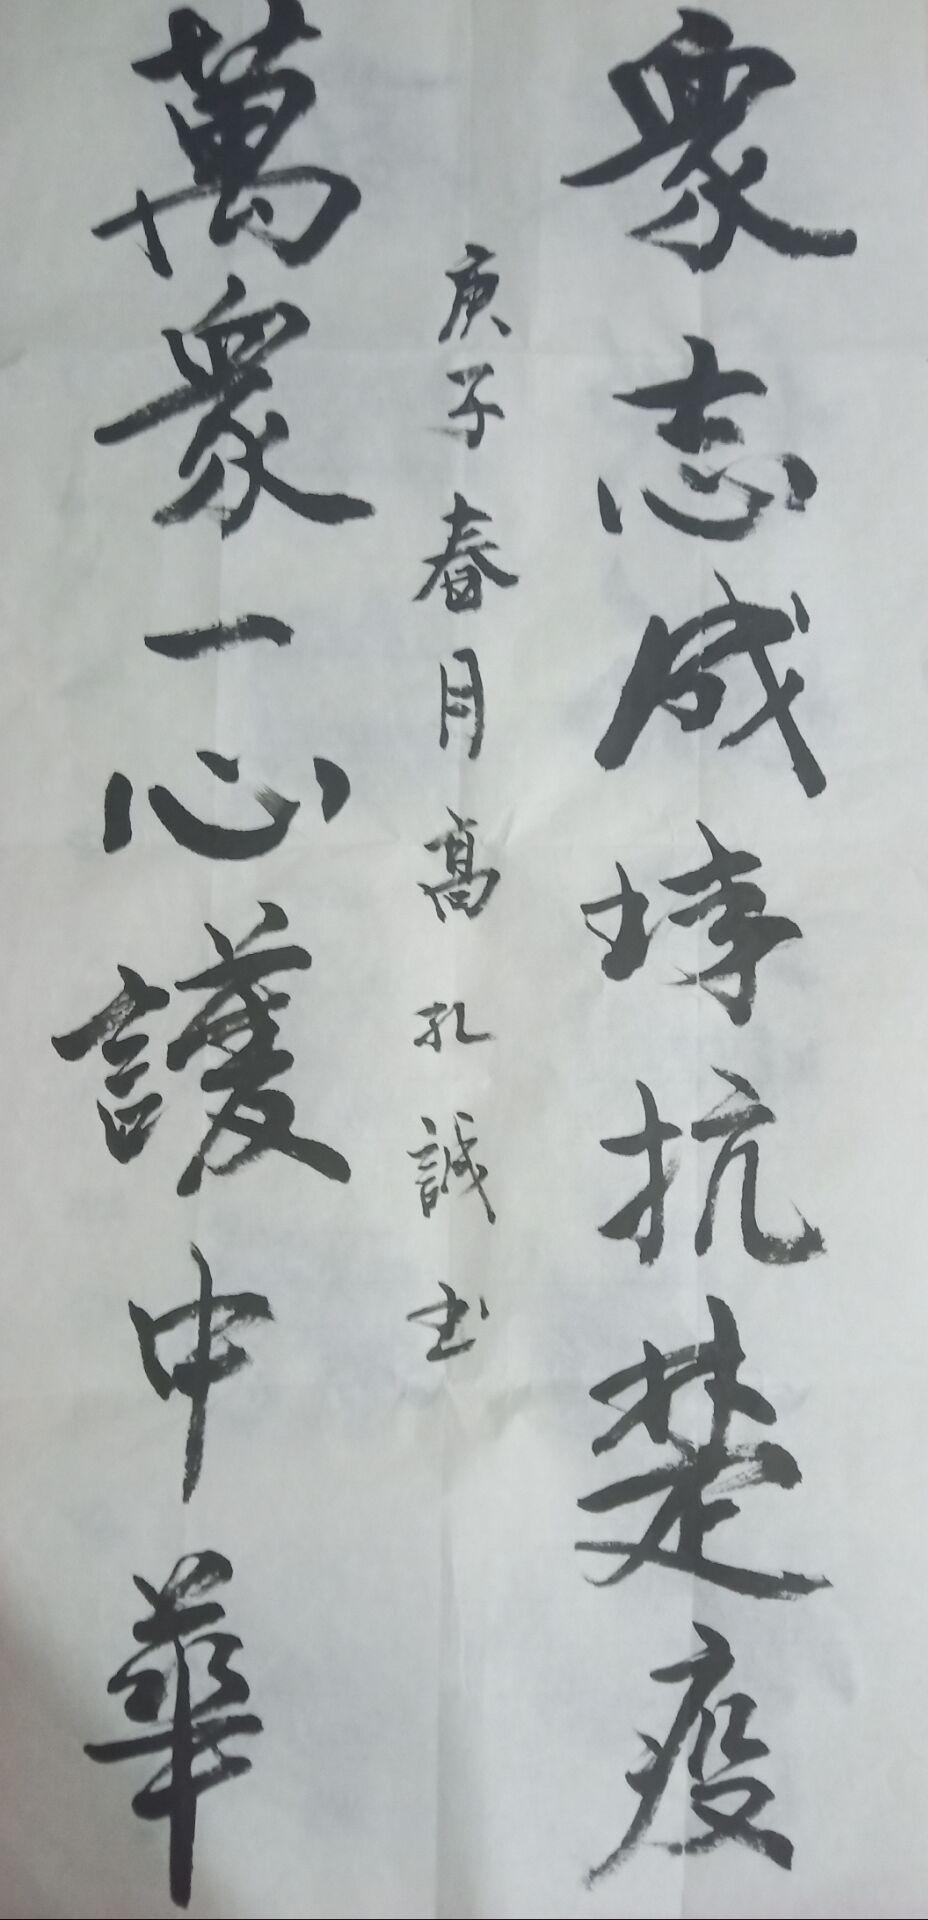 眾志成城抗楚疫
萬眾一心護中華
庚子春月高孔誠书